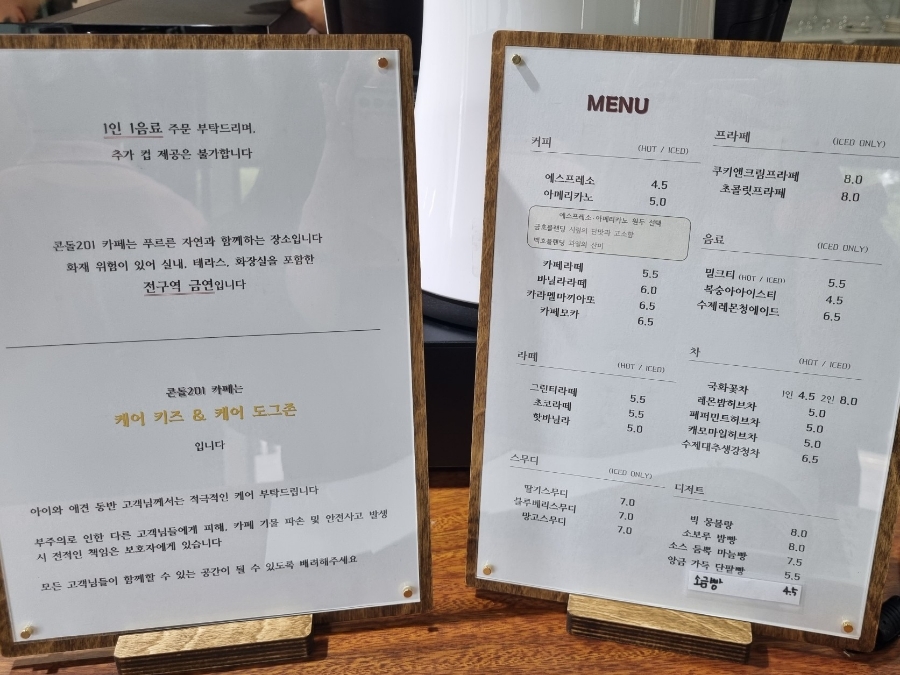 1인 1음료 주문 부탁드리며,
추가 컵 제공은 불가합니다
콘돌201 카페는 푸르른 자연과 함께하는 장소입니다
화재 위험이 있어 실내, 테라스, 화장실을 포함한
전구역 금연입니다
콘돌201 카페는
케어 키즈 & 케어 도그존
입니다
아이와 애견 동반 고객님께서는 적극적인 케어 부탁드립니다
부주의로 인한 다른 고객님들에게 피해, 카페 기물 파손 및 안전사고 발생
시 전적인 책임은 보호자에게 있습니다
모든 고객님들이 함께할 수 있는 공간이 될 수 있도록 배려해주세요
MENU
커피 (HOT / ICED)
에스프레소 4.5
아메리카노 5.0
에스프레소·아메리카노 원두 선택
금호블렌딩 시럽의 단맛과 고소함
백호블렌딩 과일의 산미
카페라떼 5.5
바닐라라떼 6.0
카라멜마끼아또 6.5
카페모카 6.5
라떼 (HOT / ICED)
그린티라떼 5.5
초코라떼 5.5
핫바닐라 5.0
스무디 (ICED ONLY)
딸기스무디 7.0
블루베리스무디 7.0
망고스무디 7.0
프라페 (ICED ONLY)
쿠키앤크림프라페 8.0
초콜릿프라페 8.0
음료 (ICED ONLY)
밀크티 (HOT / ICED) 5.5
복숭아아이스티 4.5
수제레몬청에이드 6.5
차 (HOT / ICED)
국화꽃차 1인 4.5 2인 8.0
레몬밤허브차 5.0
페퍼민트허브차 5.0
캐모마일허브차 5.0
수제대추생강청차 6.5
디저트
빅 몽블랑 8.0
소보루 밤빵 8.0
소스 듬뿍 마늘빵 7.5
앙금 가득 단팥빵 5.5
소금빵 4.5